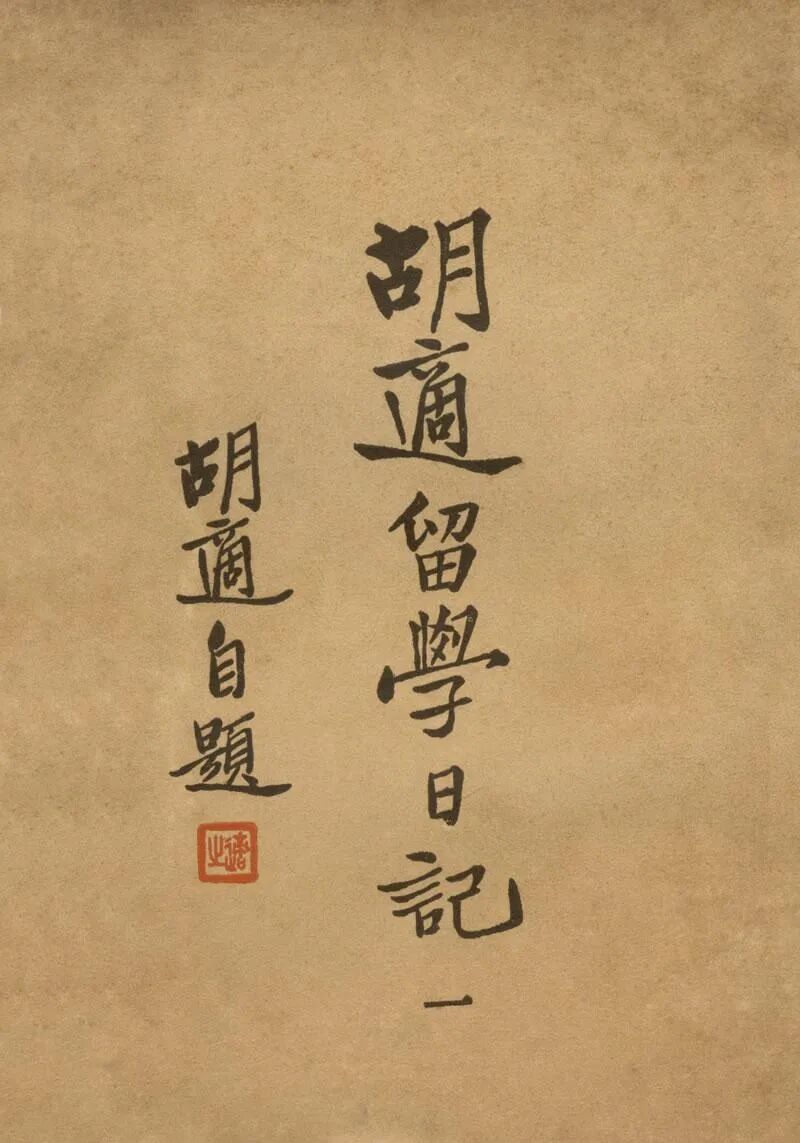 胡適留學日記 一
胡適自題
適之